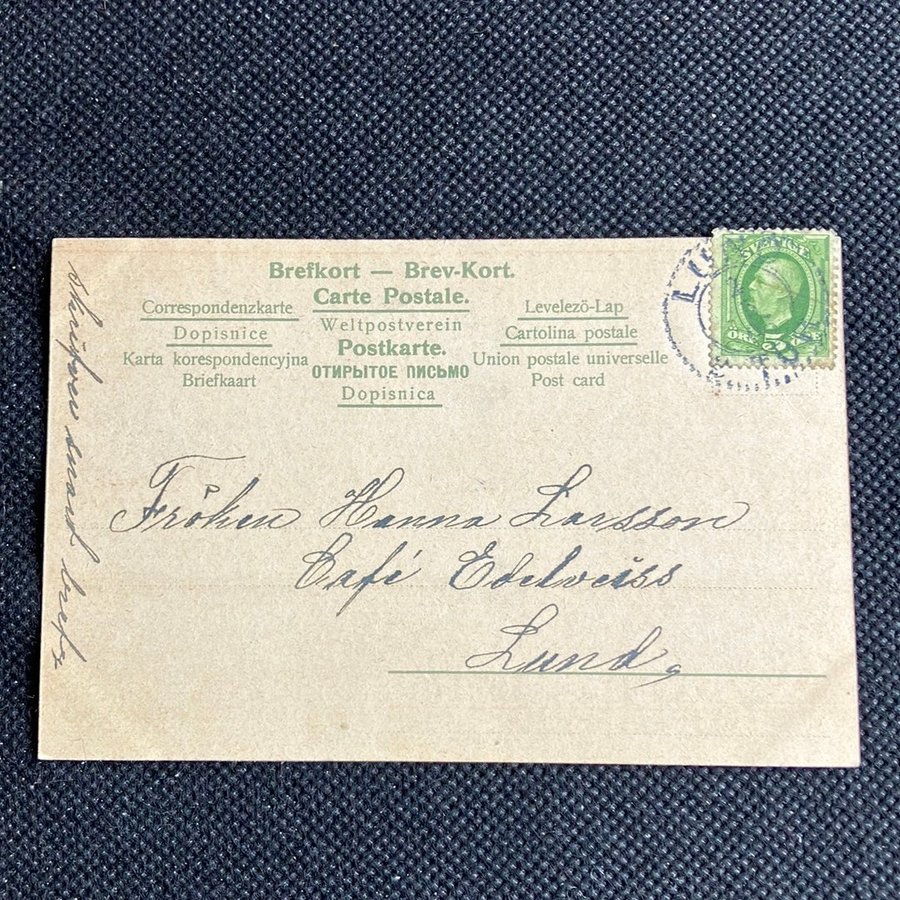 Brefkort — Brev-Kort.
Carte Postale.
Correspondenzkarte
Levelezö-Lap
Weltpostverein
Dopisnice
Cartolina postale
Postkarte.
Karta korespondencyjna
Union postale universelle
ОТКРЫТОЕ ПИСЬМО
Briefkaart
Post card
Dopisnica
SVERIGE
ÖRE
Fröken Hanna Larsson
Café Edelweiss
Lund.
skrifven snart bref